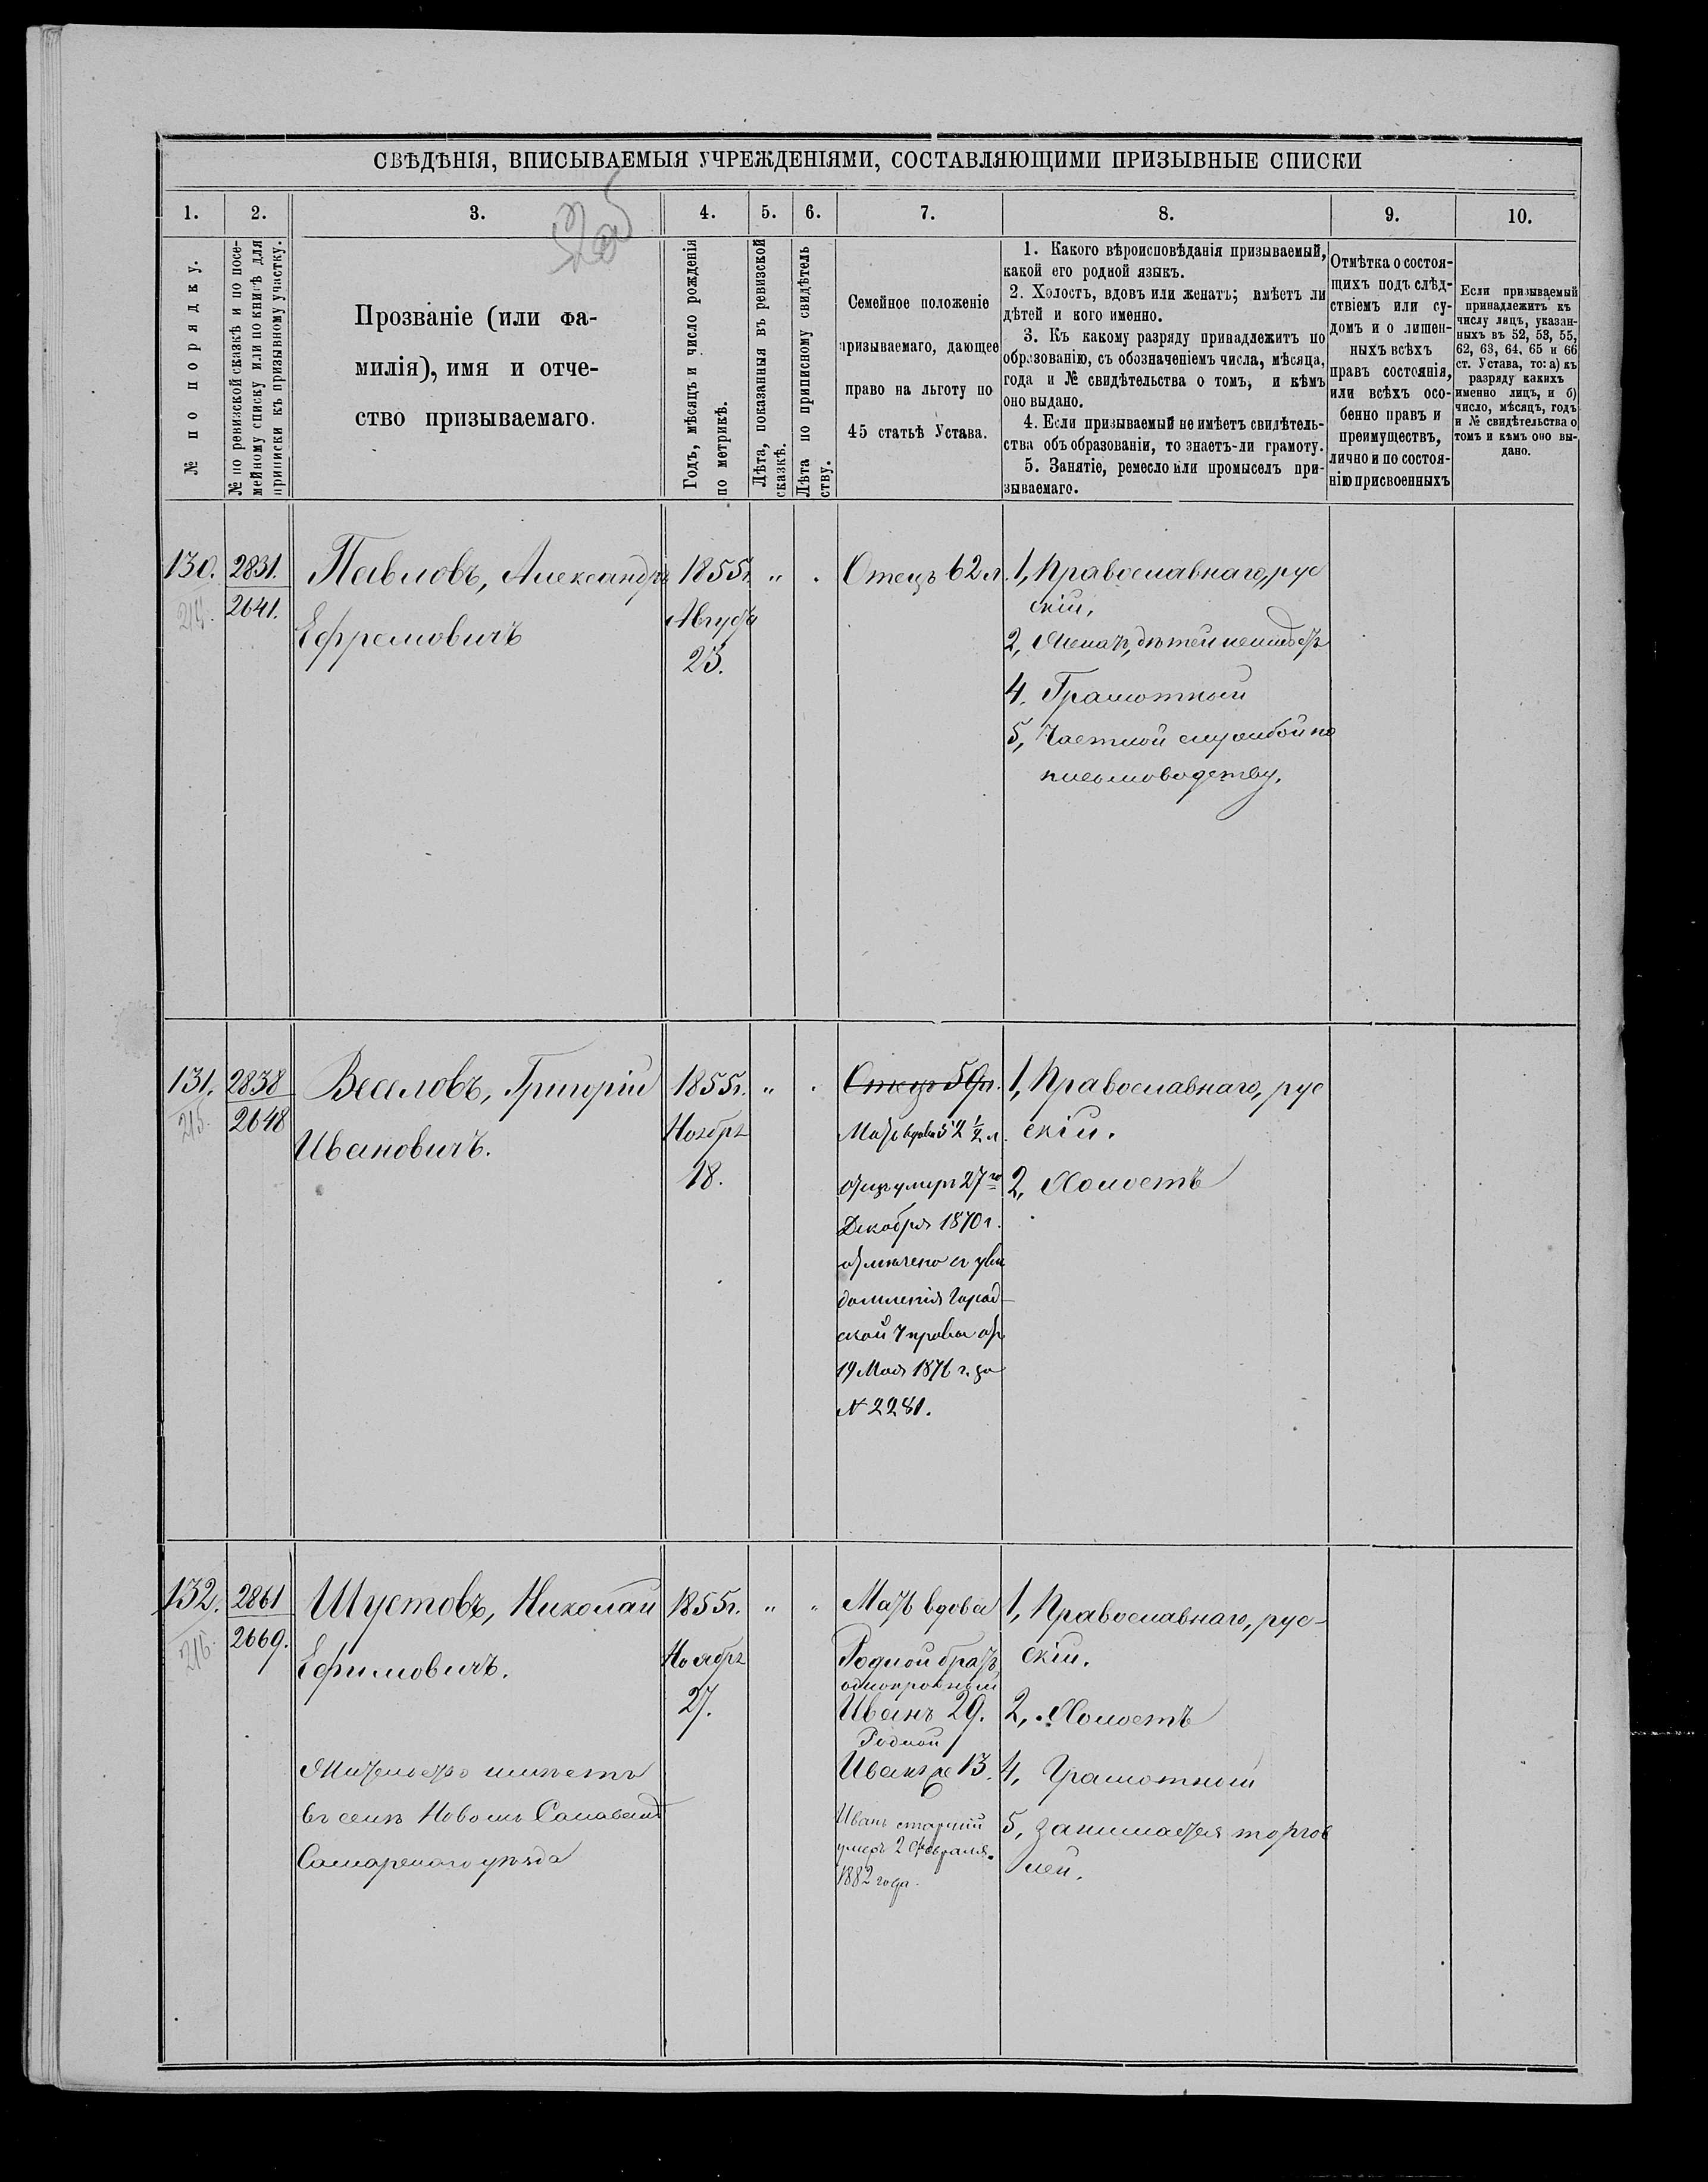 СВѢДѢНІЯ, ВПИСЫВАЕМЫЯ УЧРЕЖДЕНІЯМИ, СОСТАВЛЯЮЩИМИ ПРИЗЫВНЫЕ СПИСКИ
1. 2. 3. 4. 5. 6. 7. 8. 9. 10.
№ по порядку.
№ по ревизской сказкѣ и по посе-
мейному списку или по книгѣ для
приписки къ призывному участку.
Прозваніе (или фа-
милія), имя и отче-
ство призываемаго.
Годъ, мѣсяцъ и число рожденія
по метрикѣ.
Лѣта, показанныя въ ревизской
сказкѣ.
Лѣта по приписному свидѣтель
ству.
Семейное положеніе
призываемаго, дающее
право на льготу по
45 статьѣ Устава.
1. Какого вѣроисповѣданія призываемый,
какой его родной языкъ.
2. Холостъ, вдовъ или женатъ; имѣетъ ли
дѣтей и кого именно.
3. Къ какому разряду принадлежитъ по
образованію, съ обозначеніемъ числа, мѣсяца,
года и № свидѣтельства о томъ, и кѣмъ
оно выдано.
4. Если призываемый не имѣетъ свидѣтель-
ства объ образованіи, то знаетъ-ли грамоту.
5. Занятіе, ремесло или промыселъ при-
зываемаго.
Отмѣтка о состоя-
щихъ подъ слѣд-
ствіемъ или су-
домъ и о лишен-
ныхъ всѣхъ
правъ состоянія,
или всѣхъ осо-
бенно правъ и
преимуществъ,
лично и по состоя-
нію присвоенныхъ
Если призываемый
принадлежитъ къ
числу лицъ, указан-
ныхъ въ 52, 53, 55,
62, 63, 64, 65 и 66
ст. Устава, то: а) къ
разряду какихъ
именно лицъ, и б)
число, мѣсяцъ, годъ
и № свидѣтельства о
томъ и кѣмъ оно вы-
дано.
130.
214.
2831.
2641.
Павловъ, Александръ
Ефремовичъ
1855г.
Августа
23.
"
Отецъ 62 л.
1, Православнаго, рус
скій,
2, Женатъ, дѣтей неимѣетъ
4. Грамотный
5, Частной службой по
письмоводству.
131.
215.
2838
2648
Веселовъ, Григорій
Ивановичъ.
1855г.
Ноября
18.
"
Отецъ 59л.
Мать вдова 52 ½ л.
отецъ умеръ 27го
Декабря 1870 г.
отмечено съ уве
домленія Город-
ской Управы отъ
19 Мая 1876 г. за
№ 2281.
1, Православнаго, рус
скій.
2, Холостъ
132.
216.
2861
2669.
Шустовъ, Николай
Ефимовичъ.
Жительство имѣетъ
въ селѣ Новомъ
Самарскаго уѣзда
1855г.
Ноября
27.
"
"
Мать вдова
Родной братъ
однокровный
Иванъ 29.
Родной
Иванъ же 13.
Иванъ старшій
умеръ 2 Февраля
1882 года.
1, Православнаго, рус-
скій.
2, Холостъ
4, Грамотный
5, Занимается торгов
лей.